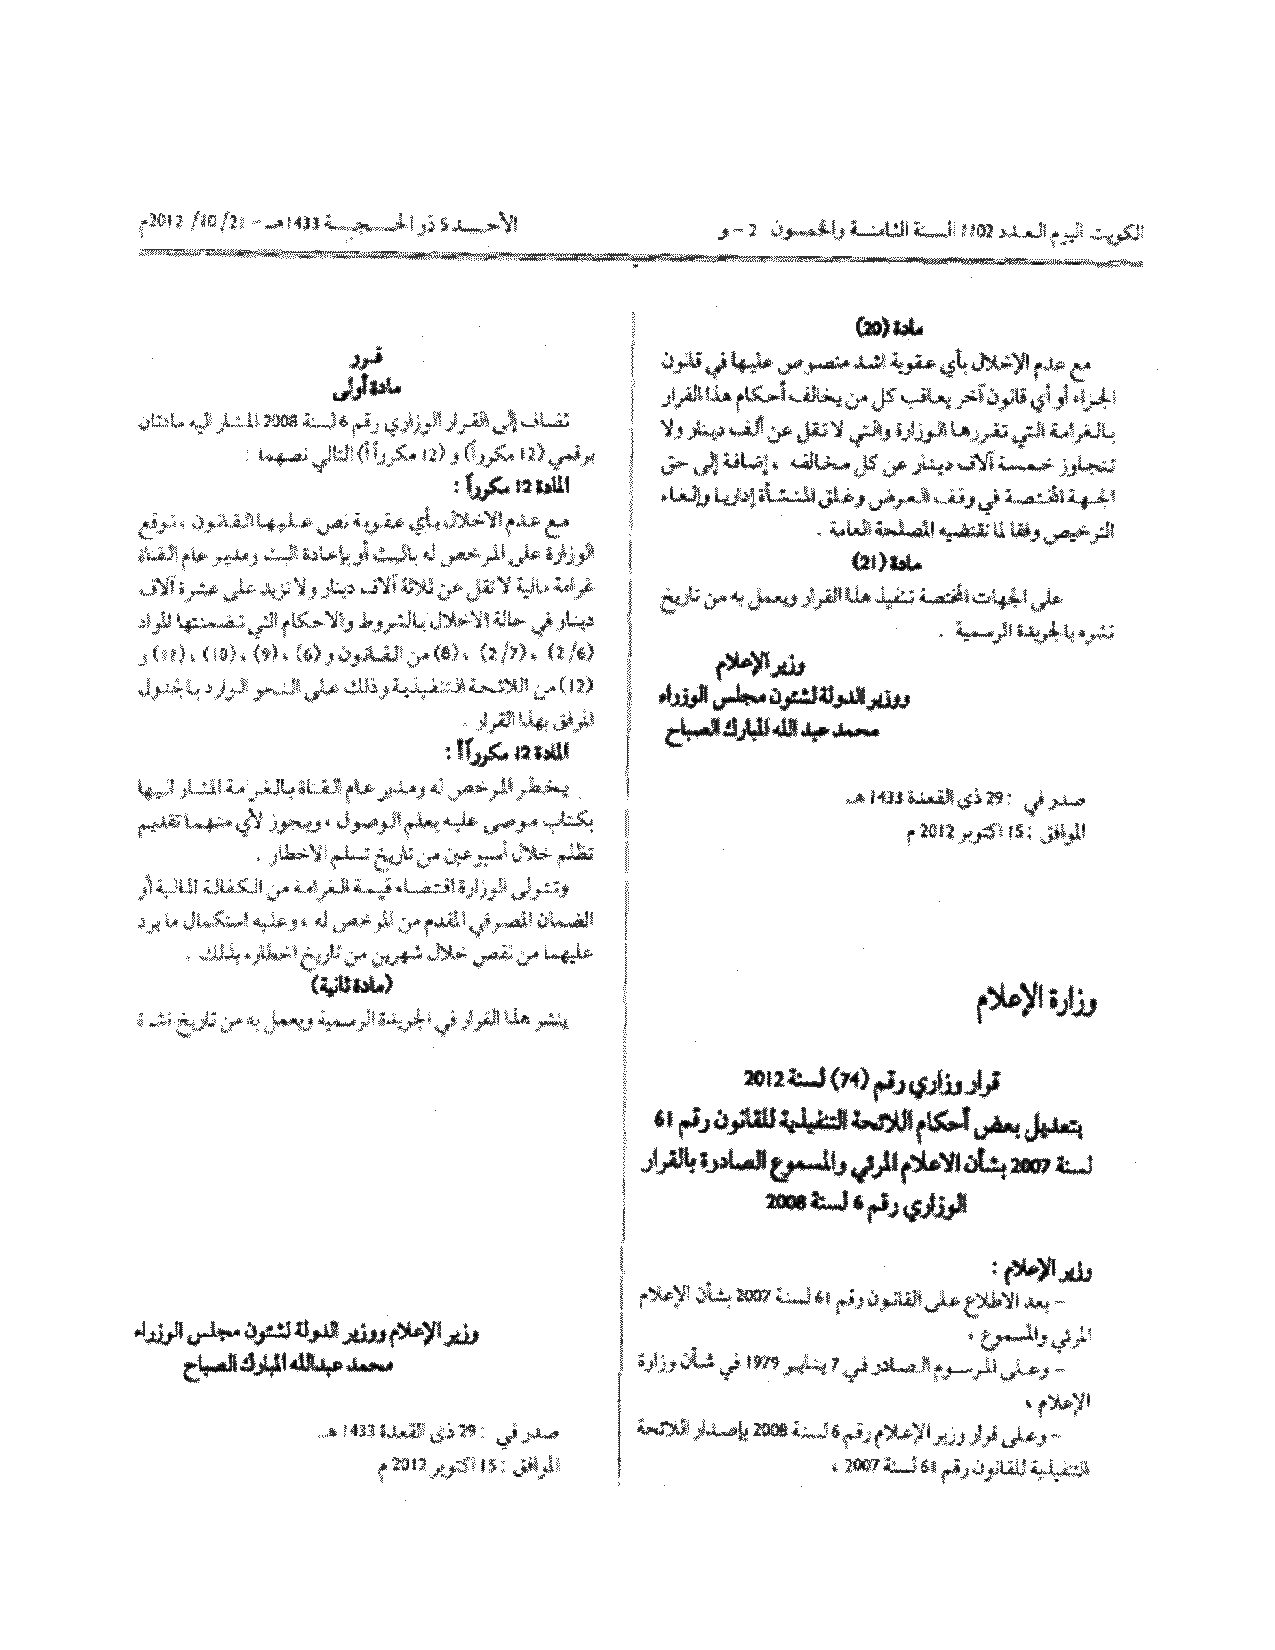 الكويت اليوم العدد 1102 السنة الثامنة والخمسون 2 - و
الأحــد 5 ذو الحـجـة 1433هـ - 21/ 10/ 2012م
مادة (20)
مع عدم الإخلال بأي عقوبة اشد منصوص عليها في قانون
الجزاء أو أي قانون آخر يعاقب كل من يخالف أحكام هذا القرار
بالغرامة التي تقررها الوزارة والتي لا تقل عن ألف دينار ولا
تتجاوز خمسة آلاف دينار عن كل مخالفه ، إضافة إلى حق
الجهة المختصة في وقف العرض وغلق المنشأة إداريا وإلغاء
الترخيص وفقا لما تقتضيه المصلحة العامة .
مادة (21)
على الجهات المختصة تنفيذ هذا القرار ويعمل به من تاريخ
نشره بالجريدة الرسمية .
وزير الإعلام
ووزير الدولة لشئون مجلس الوزراء
محمد عبد الله المبارك الصباح
صدر في : 29 ذي القعدة 1433 هـ
الموافق : 15 اكتوبر 2012 م
وزارة الإعلام
قرار وزاري رقم (74) لسنة 2012
بتعديل بعض أحكام اللائحة التنفيذية للقانون رقم 61
لسنة 2007 بشأن الاعلام المرئي والمسموع الصادرة بالقرار
الوزاري رقم 6 لسنة 2008
وزير الإعلام :
- بعد الاطلاع على القانون رقم 61 لسنة 2007 بشأن الإعلام
المرئي والمسموع ،
- وعلى المرسوم الصادر في 7 يناير 1979 في شأن وزارة
الإعلام ،
- وعلى قرار وزير الإعلام رقم 6 لسنة 2008 بإصدار اللائحة
التنفيذية للقانون رقم 61 لسنة 2007 ،
قــرر
مادة أولى
تضاف إلى القرار الوزاري رقم 6 لسنة 2008 المشار اليه مادتان
برقمي (12 مكرراً) و (12 مكرراً أ) التالي نصهما :
المادة 12 مكرراً :
مع عدم الاخلال بأي عقوبة نص عليها القانون ، توقع
الوزارة على المرخص له بالبث أو بإعادة البث ومدير عام القناة
غرامة مالية لا تقل عن ثلاثة آلاف دينار ولا تزيد على عشرة آلاف
دينار في حالة الاخلال بالشروط والاحكام التي تضمنتها المواد
(2/6) ، (2/7) ، (8) من القانون و (6) ، (9) ، (10) ، (11) و
(12) من اللائحة التنفيذية وذلك على النحو الوارد بالجدول
المرفق بهذا القرار .
المادة 12 مكرراً أ :
يخطر المرخص له ومدير عام القناة بالغرامة المشار اليها
بكتاب موصى عليه بعلم الوصول ، ويجوز لأي منهما تقديم
تظلم خلال أسبوعين من تاريخ تسلم الاخطار .
وتتولى الوزارة اقتضاء قيمة الغرامة من الكفالة المالية أو
الضمان المصرفي المقدم من المرخص له ، وعليه استكمال ما يرد
عليهما من نقص خلال شهرين من تاريخ اخطاره بذلك .
(مادة ثانية)
ينشر هذا القرار في الجريدة الرسمية ويعمل به من تاريخ
وزير الإعلام ووزير الدولة لشئون مجلس الوزراء
محمد عبدالله المبارك الصباح
صدر في : 29 ذي القعدة 1433 هـ
الموافق : 15 اكتوبر 2012 م